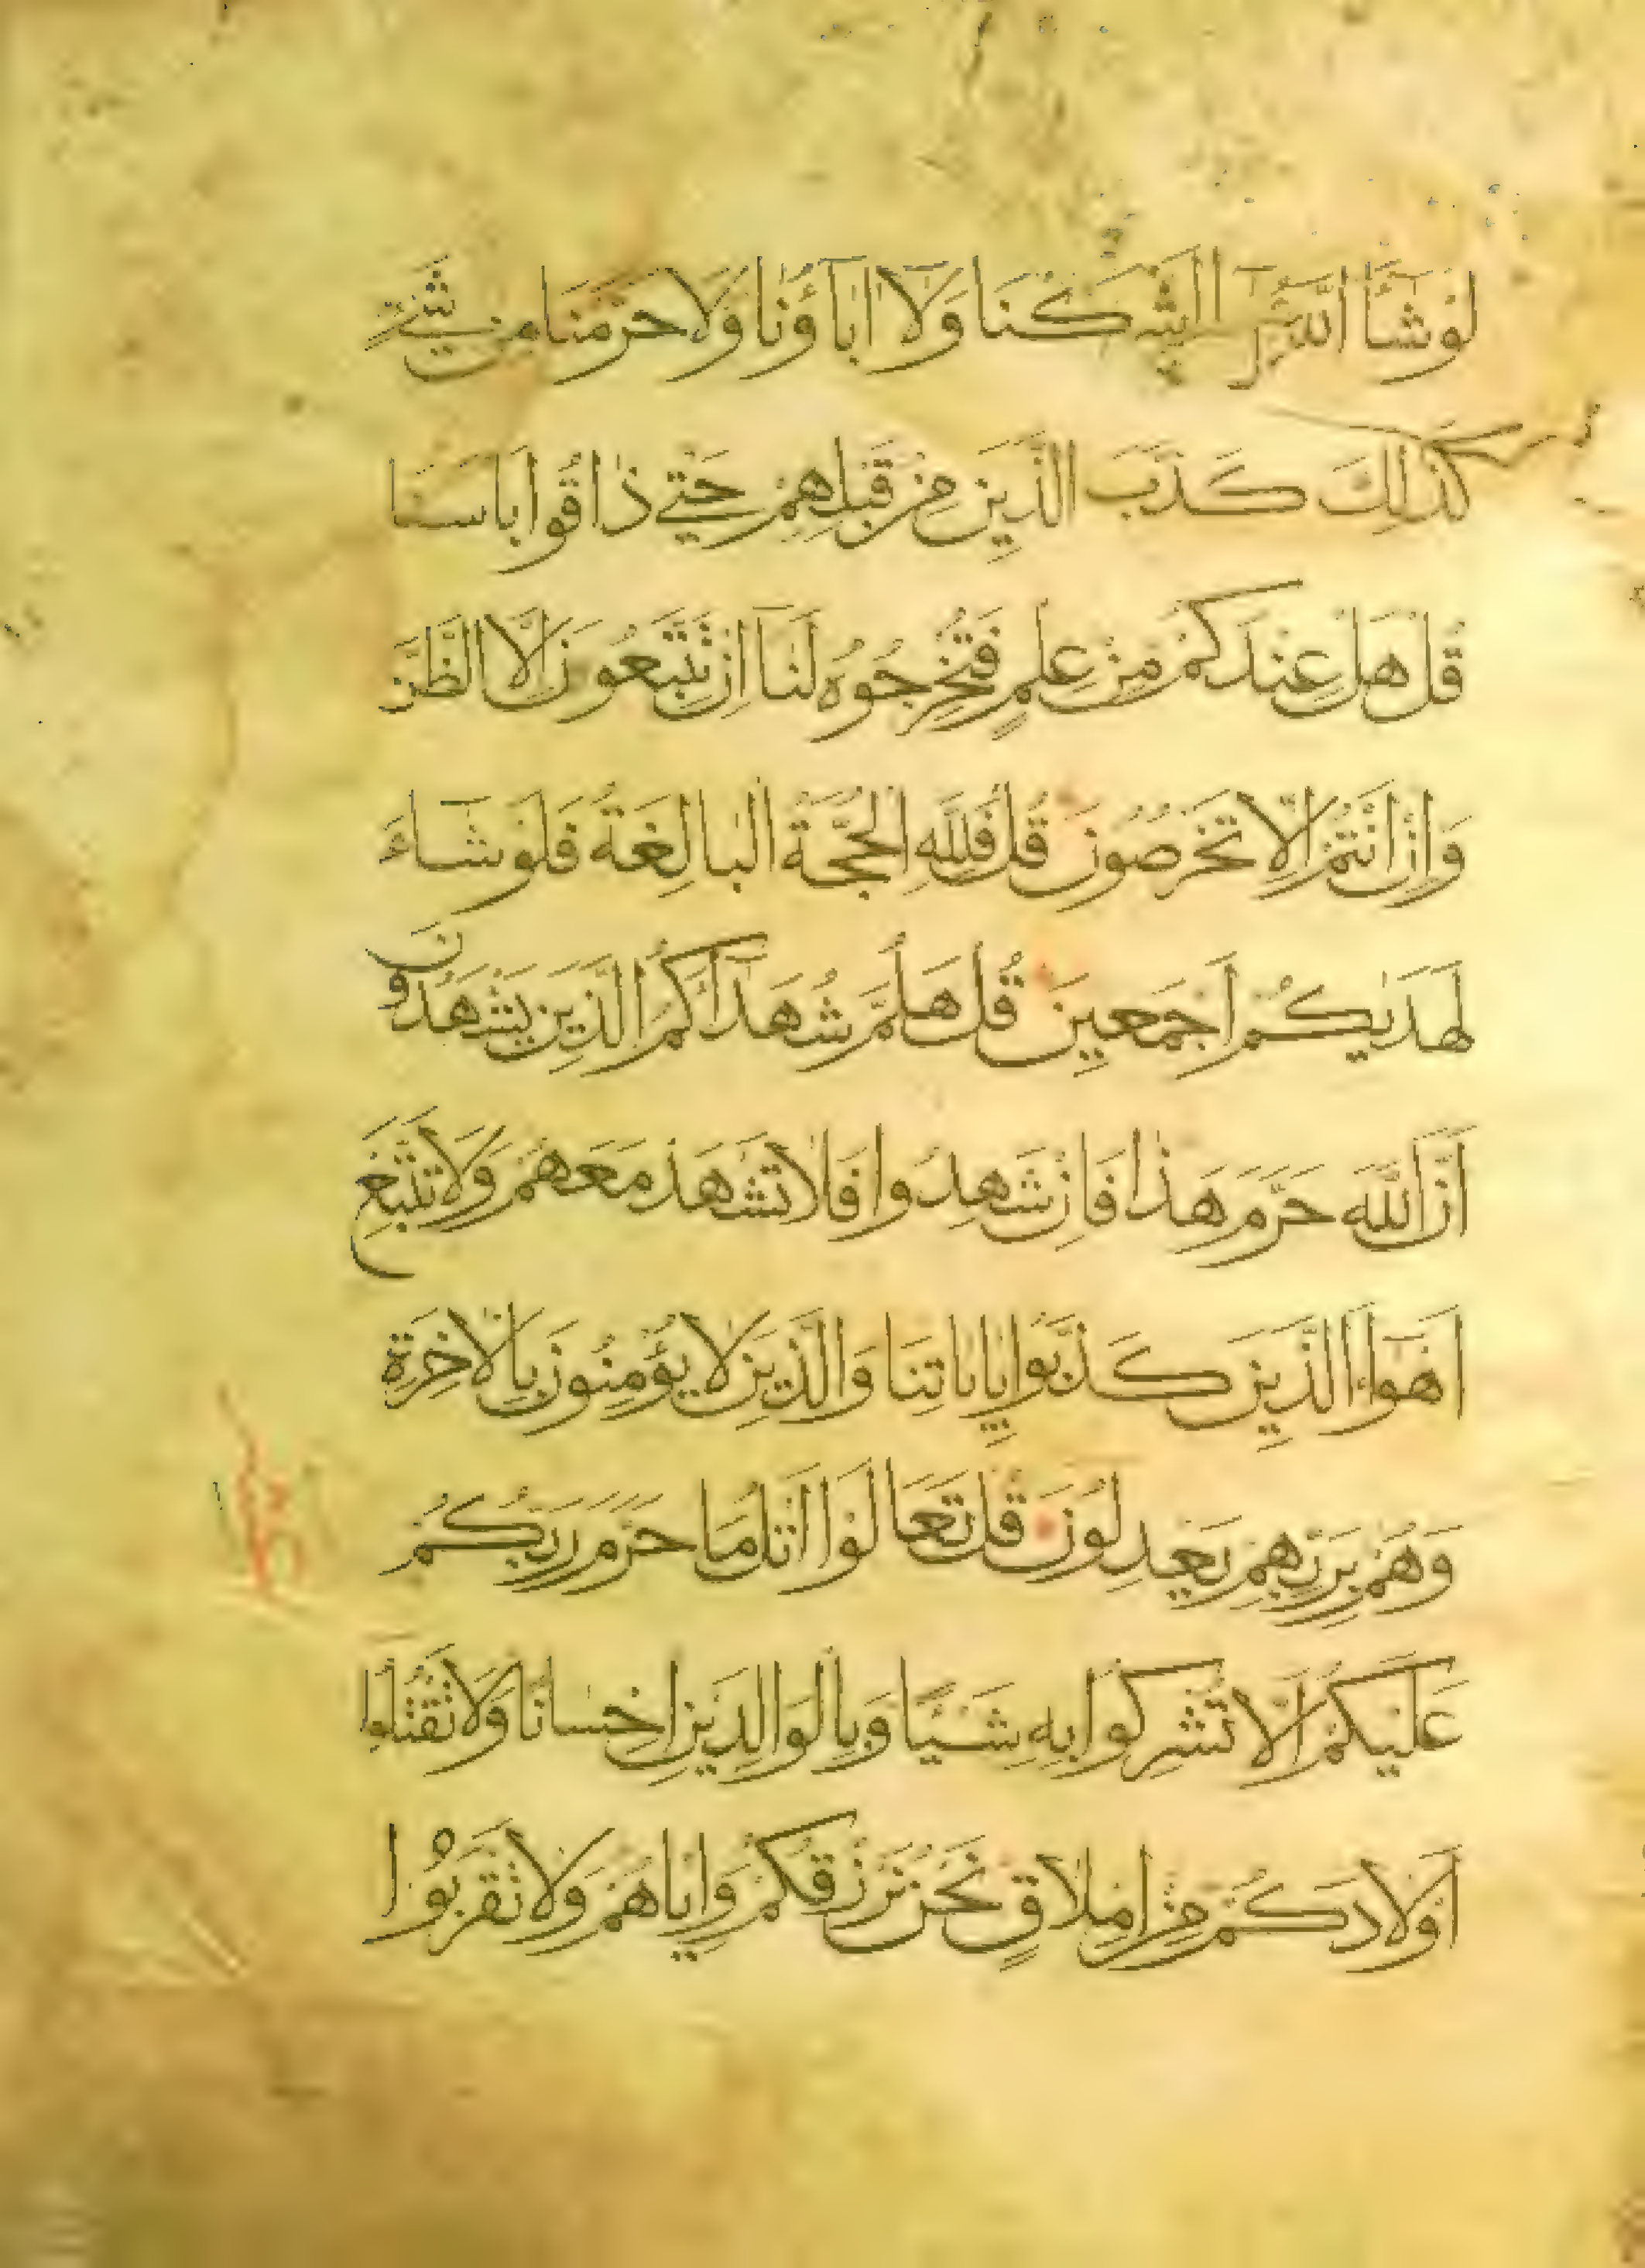 لَوْ شَآ اللَّهُ مَآ اَشْرَكْنَا وَلَآ اٰبَآؤُنَا وَلَا حَرَّمْنَا مِن شَيْءٍ
كَذٰلِكَ كَذَّبَ الَّذِينَ مِنْ قَبْلِهِمْ حَتّٰى ذَاقُوا بَاسَنَا
قُلْ هَلْ عِنْدَكُمْ مِنْ عِلْمٍ فَتُخْرِجُوهُ لَنَآ اِنْ تَتَّبِعُونَ اِلَّا الظَّنَّ
وَاِنْ اَنْتُمْ اِلَّا تَخْرُصُونَ قُلْ فَلِلَّهِ الْحُجَّةُ الْبَالِغَةُ فَلَوْ شَآءَ
لَهَدٰيكُمْ اَجْمَعِينَ قُلْ هَلُمَّ شُهَدَآءَكُمُ الَّذِينَ يَشْهَدُونَ
اَنَّ اللَّهَ حَرَّمَ هٰذَا فَاِنْ شَهِدُوا فَلَا تَشْهَدْ مَعَهُمْ وَلَا تَتَّبِعْ
اَهْوَآءَ الَّذِينَ كَذَّبُوا بِاٰيَاتِنَا وَالَّذِينَ لَا يُؤْمِنُونَ بِالْاٰخِرَةِ
وَهُمْ بِرَبِّهِمْ يَعْدِلُونَ قُلْ تَعَالَوْا اَتْلُ مَا حَرَّمَ رَبُّكُمْ
عَلَيْكُمْ اَلَّا تُشْرِكُوا بِهِ شَيْئًا وَبِالْوَالِدَيْنِ اِحْسَانًا وَلَا تَقْتُلُوا
اَوْلَادَكُمْ مِنْ اِمْلَاقٍ نَحْنُ نَرْزُقُكُمْ وَاِيَّاهُمْ وَلَا تَقْرَبُوا